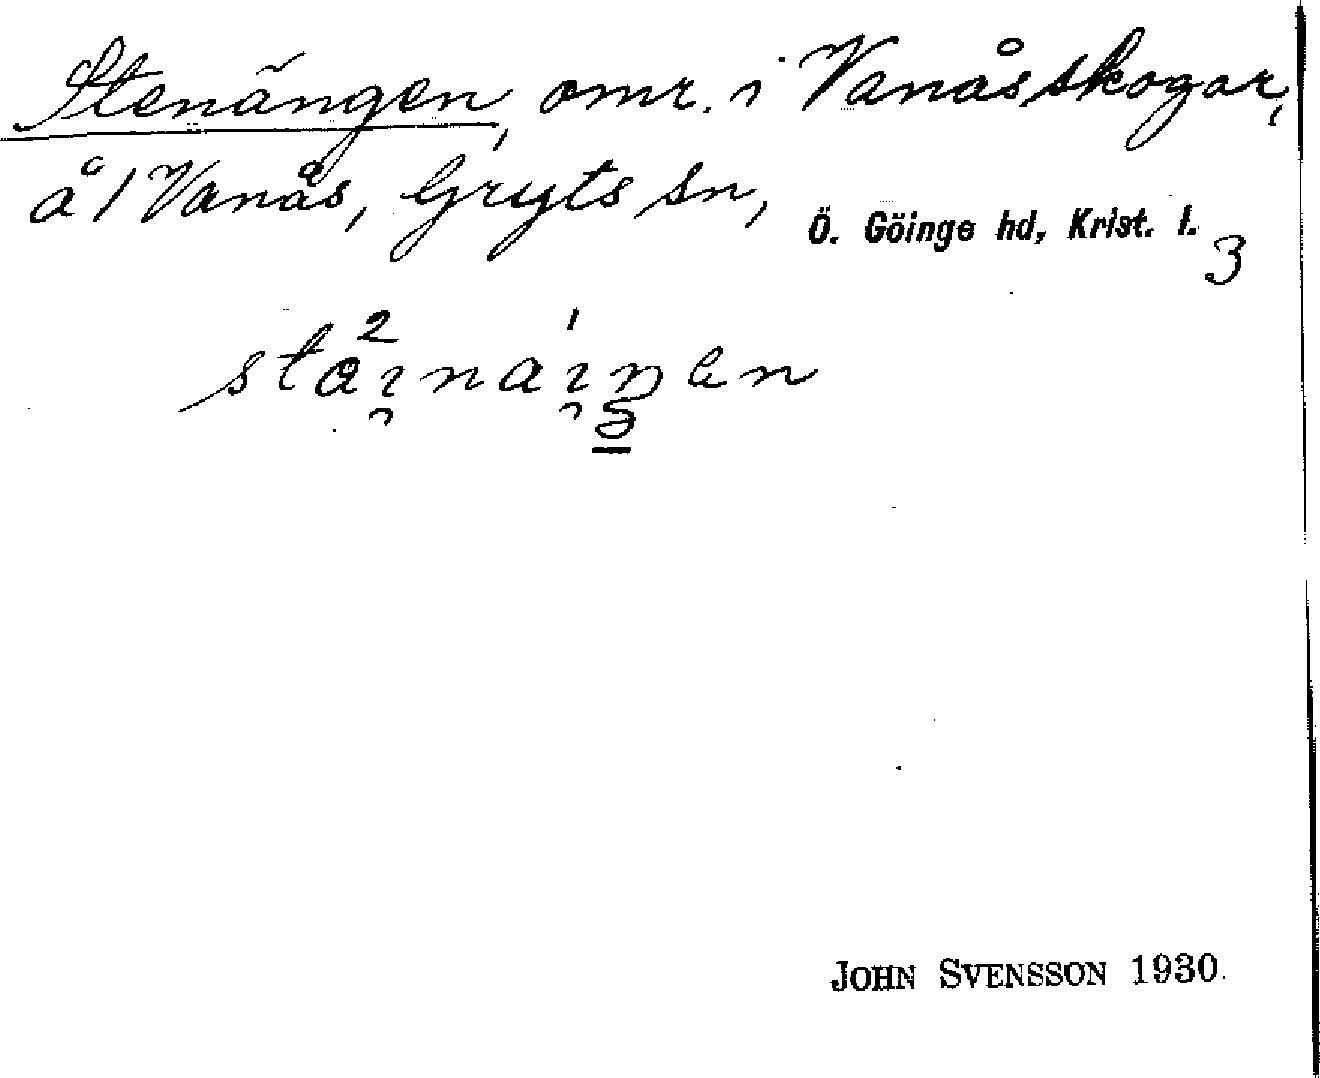 Stenängen, omr. i Vanås skogar,
å 1 Vanås, Gryts sn, Ö. Göinge hd, Krist. l.
3
JOHN SVENSSON 1930.